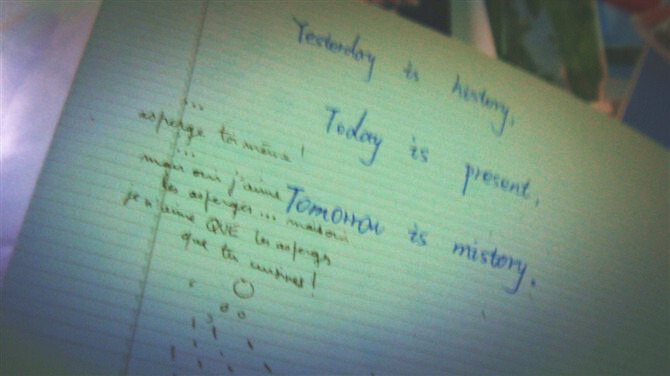 Yesterday is history,
Today is present,
Tomorrow is mistory.
...
asperge toi même !
...
mais oui j'aime
les asperges... maison
je n'aime QUE les asperges
que tu cuisines !